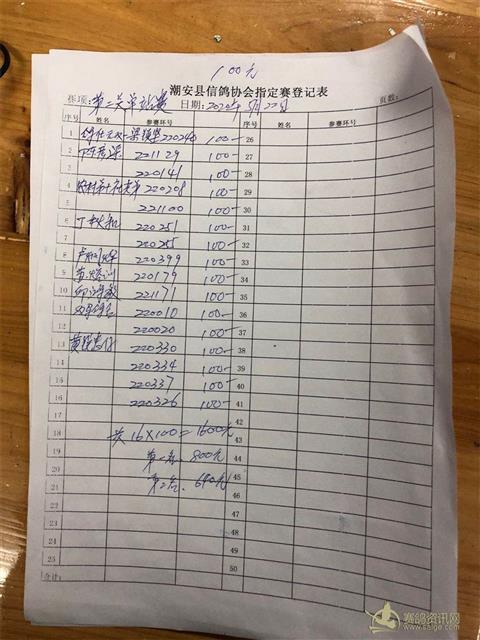 100元
潮安县信鸽协会指定赛登记表
赛项: 第三关单站赛 日期: 2020年5月22日 页数:
序号 姓名 参赛环号 序号 姓名 参赛环号
1 220240 100- 26
2 221129 100- 27
3 220141 100- 28
4 220208 100- 29
5 221100 100- 30
6 220251 100- 31
7 220255 100- 32
8 220399 100- 33
9 220179 100- 34
10 221171 100- 35
11 220010 100- 36
12 220020 100- 37
13 220330 100- 38
14 220334 100- 39
15 220337 100- 40
16 220326 100- 41
17 42
18 共16×100=1600元 43
19 第一名. 800元 44
20 第二名. 640元 45
21 46
22 47
23 48
24 49
25 50
合计:
赛鸽资讯网
www.saige.com